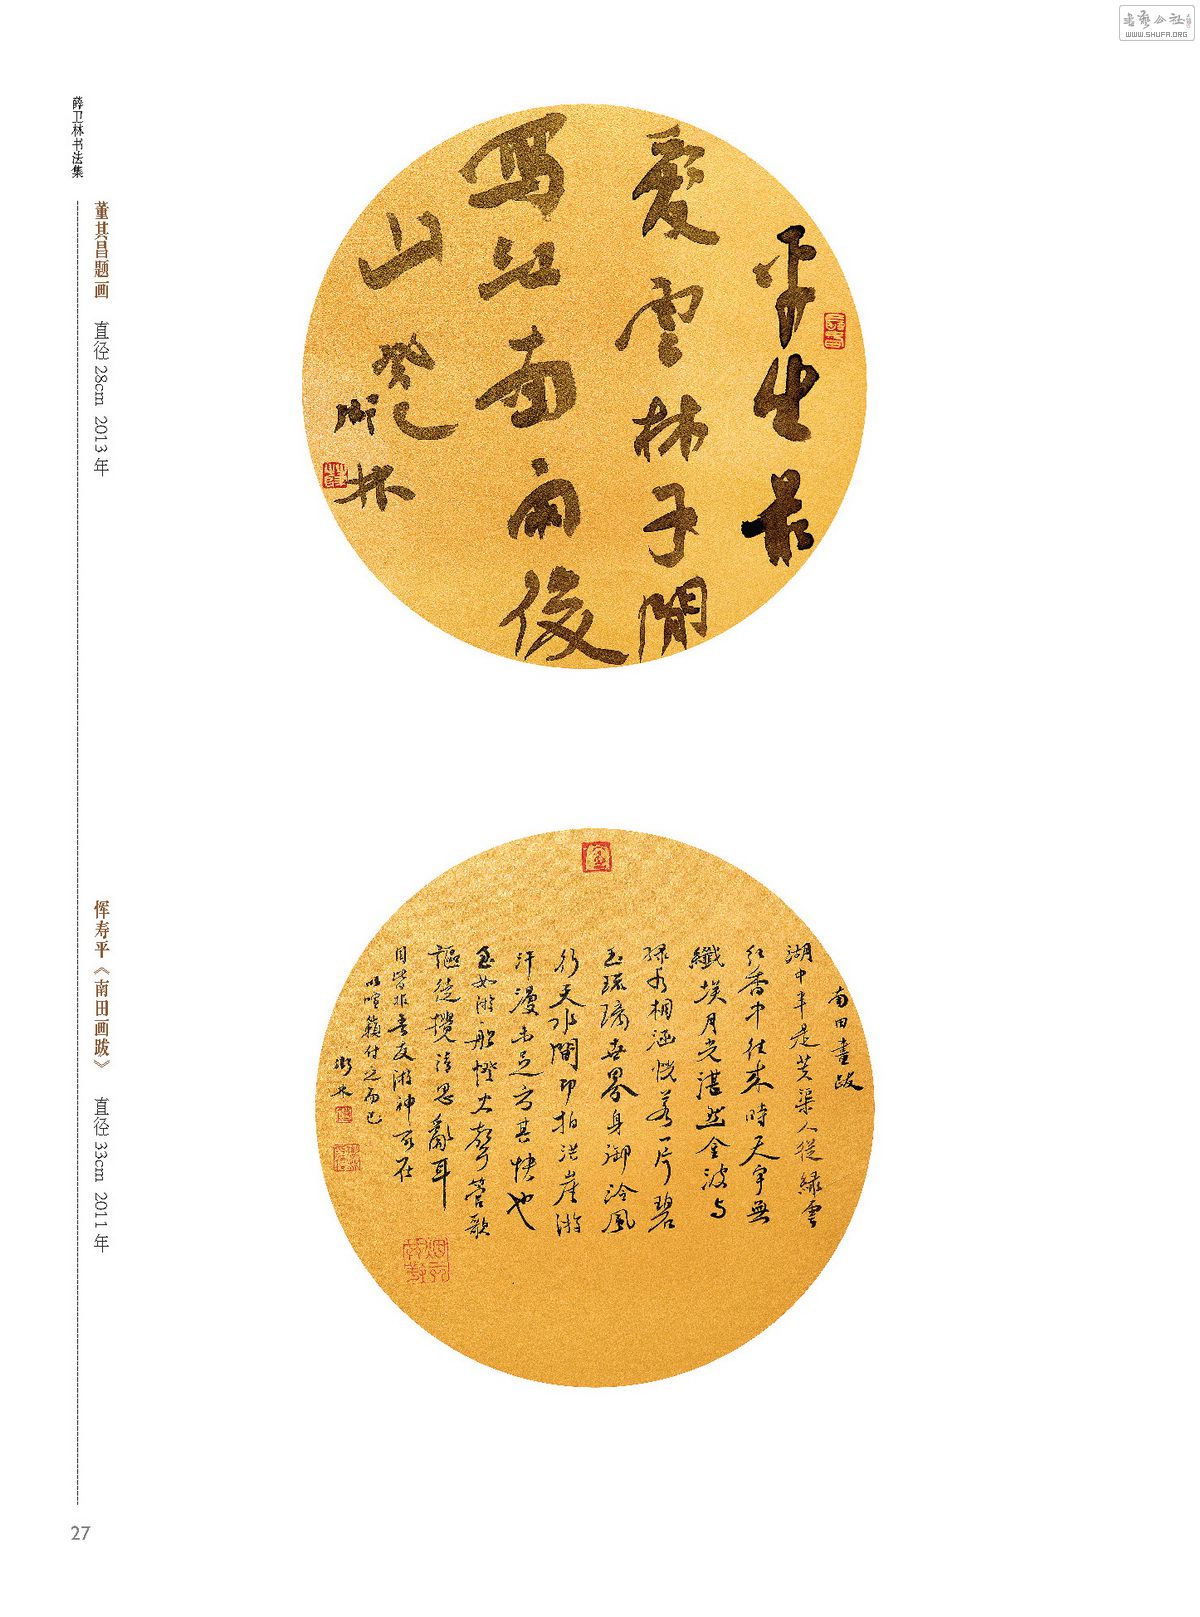 书艺公社
WWW.SHUFA.ORG
薛卫林书法集
董其昌题画 直径28cm 2013年
平生最
爱云林子闲
写江南雨后
山 癸巳
卫林
恽寿平《南田画跋》 直径33cm 2011年
南田畫跋
湖中半是芙渠人從緑雲
红香中往来時天宇無
纖埃月光湛然金波与
緑水相涵恍若一片碧
玉琉璃世界身御泠風
行天水間即拍洪崖游
汗漫未足方其快也
至如游船燈火聲管歌
謳徒攪清思亂耳
目皆非吾友游神所在
以喧籟付之而已
衛林
27